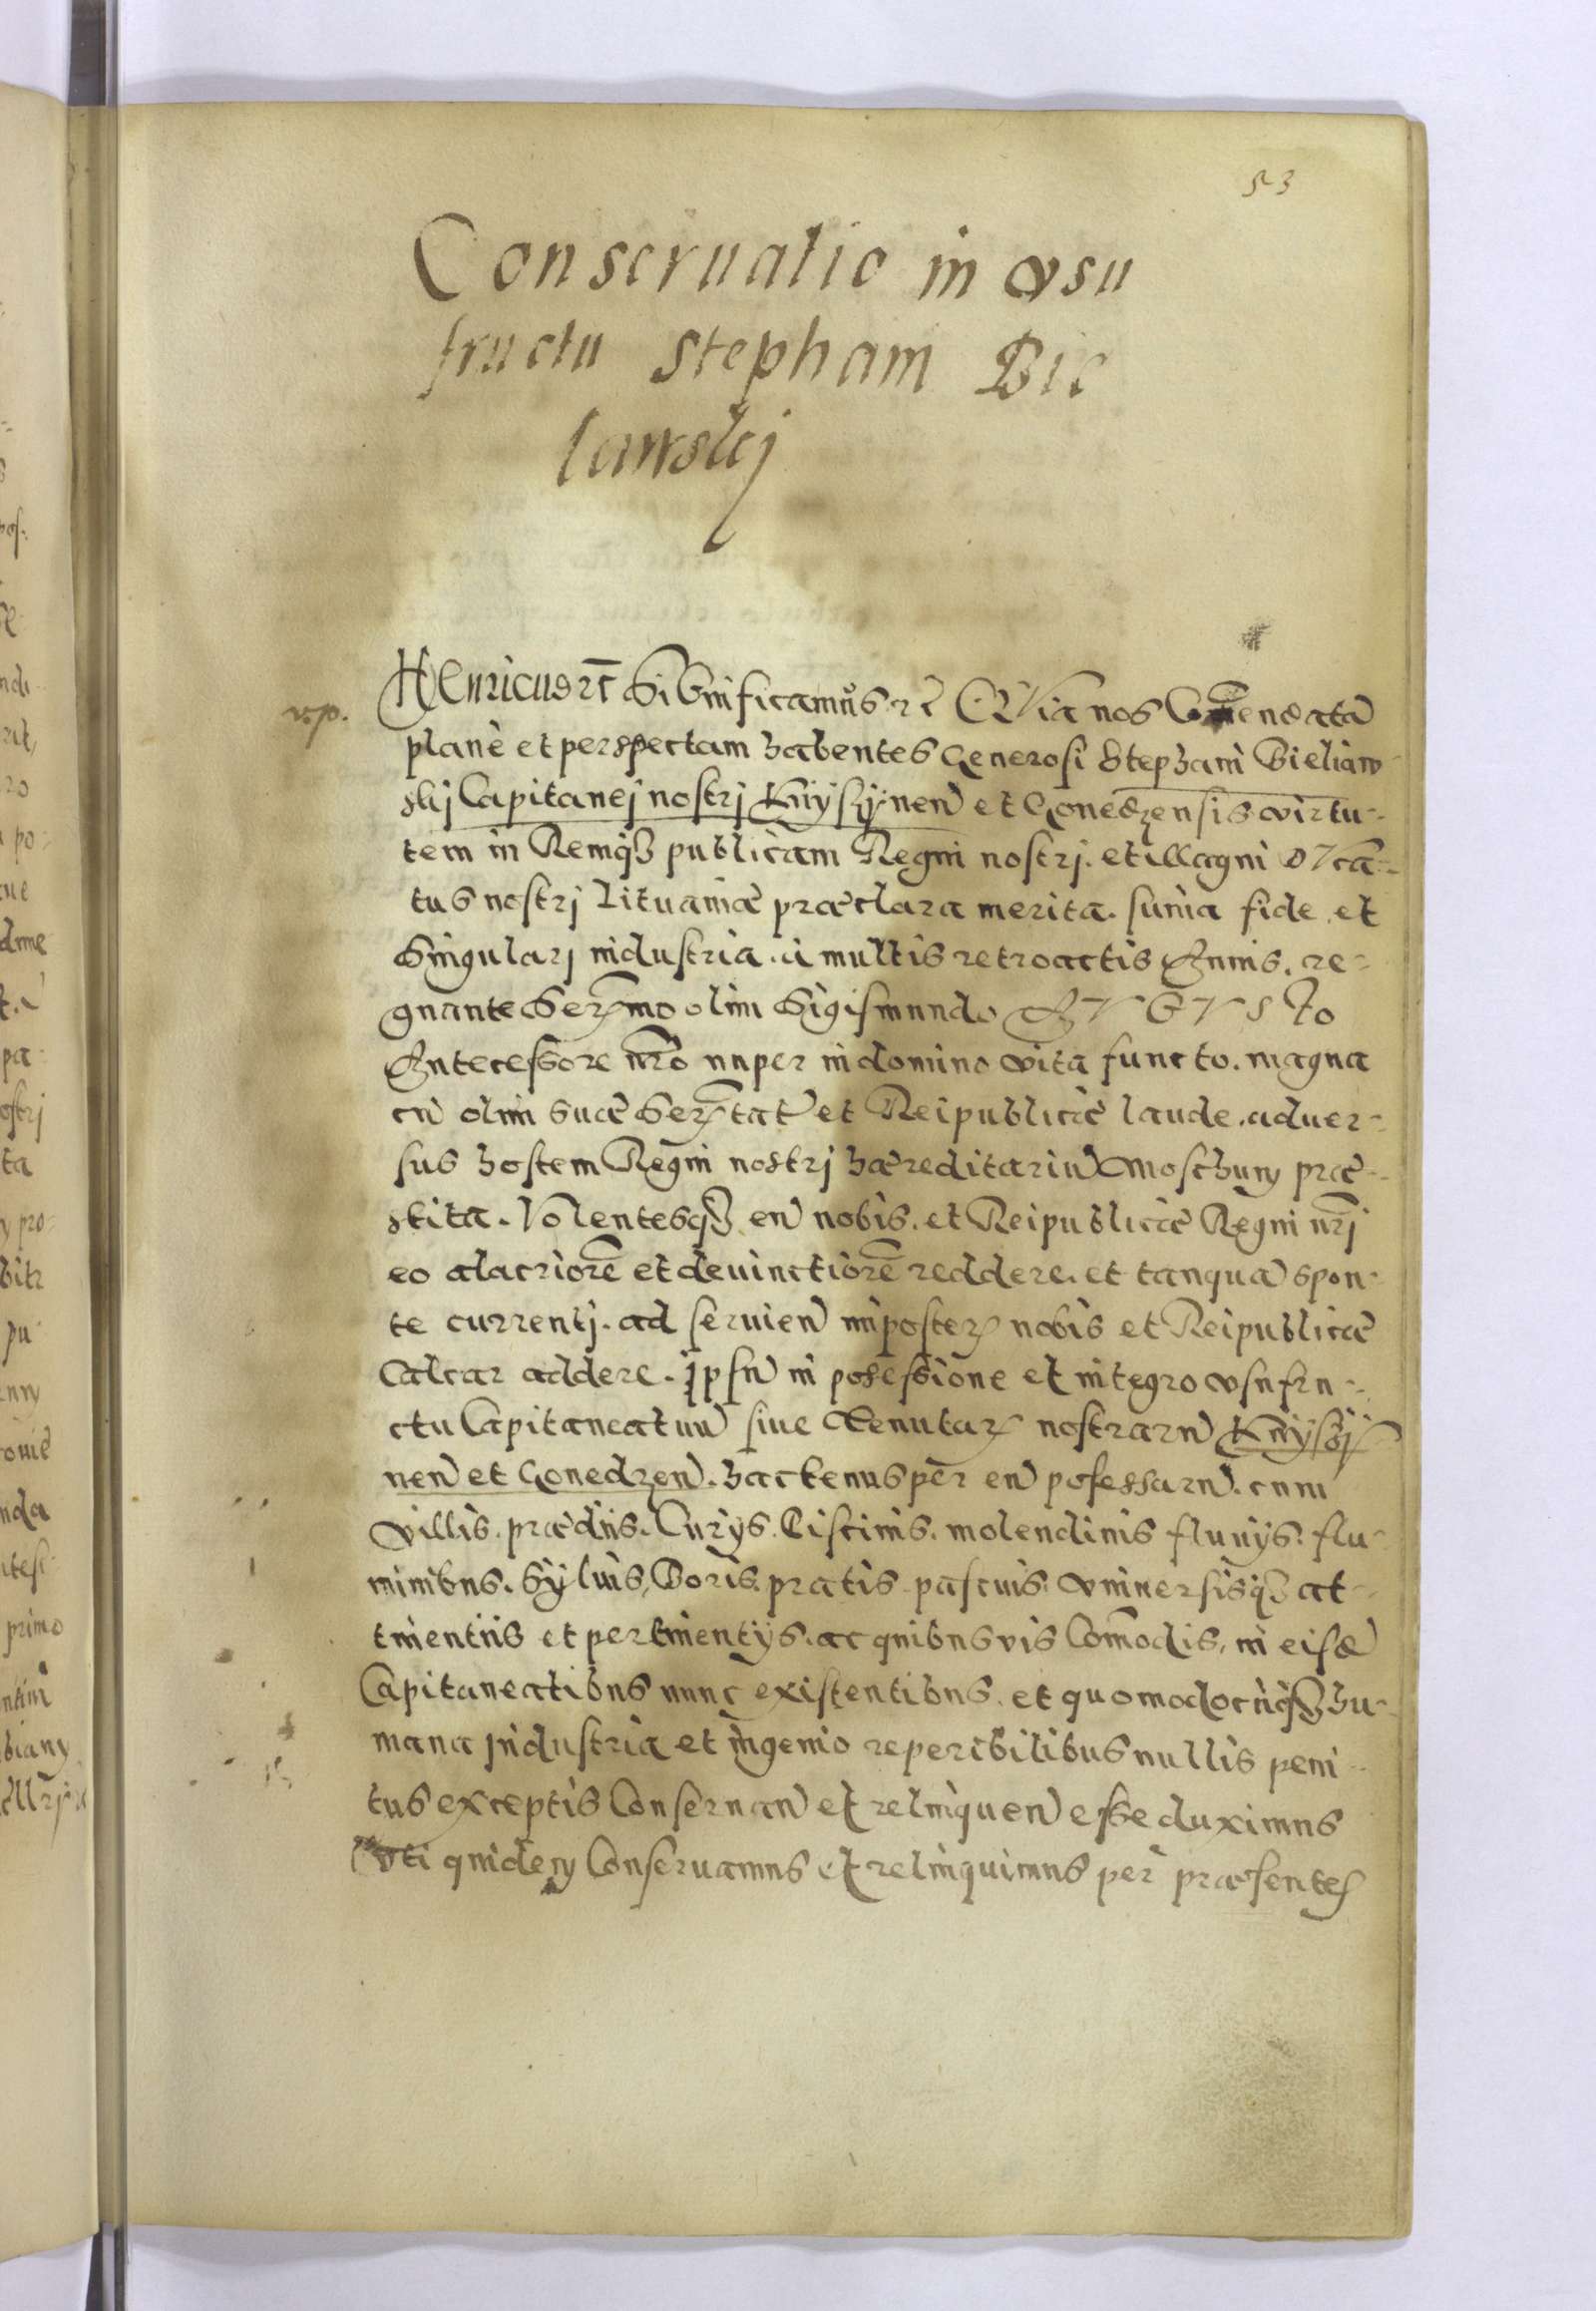 53
Conseruatio in vsu
fructu Stephani Bie
lawskj
Henricus etc̄ SiGnificamus etc̄ QVia nos Com̄endatā
v.p.
planè et perspectam habentes Generosi Stephani Bieliaw-
skj Capitanej nostrj Knÿszÿnen̄ et Gonedzensis virtu-
tem in Remqȝ publicam Regni nostrj. et Magni DVcā-
tus nostrj Lituaniæ præclara merita. sum̄a fide et
singularj industria. à multis retroactis Annis. re-
gnante Sereꝝmo olim Sigismundo AVGVSTo
Antecessore nr̄o nuper in domino vita functo. magna
cū olim suæ Sereꝝtat̄ et Reipublicæ laude. aduer-
sus hostem Regni nostrj hæreditariū Moschum præ-
stita. Volentesqȝ eū nobis. et Reipublicæ Regni nr̄j
eo alacriorē et deuinctiorē reddere. et tanquā spon-
te currentj. ad seruien̄ imposteꝝ nobis et Reipublicæ
Calcar addere. Ipsū in posessione et integro vsufru-
ctu Capitaneatuū siue Tenutaꝝ nostrarū Knÿszÿ
nen̄ et Gonedzen̄. hactenus per eū possessarū. cum
villis. prædiis. Curijs. Piscinis. molendinis fluuijs. flu-
minibus. Sÿluis, Boris. pratis. pascuis. vniuersisqȝ at-
tinentiis et pertinentijs. ac quibusvis Com̄odis, in eisd̄
Capitaneatibus nunc existentibus. et quomodocūqȝ hu-
mana Industria et ingenio reperibilibus nullis peni-
tus exceptis Conseruan̄ et relinquen̄ esse duximus
vti quidem Conseruamus et relinquimus per præsentes